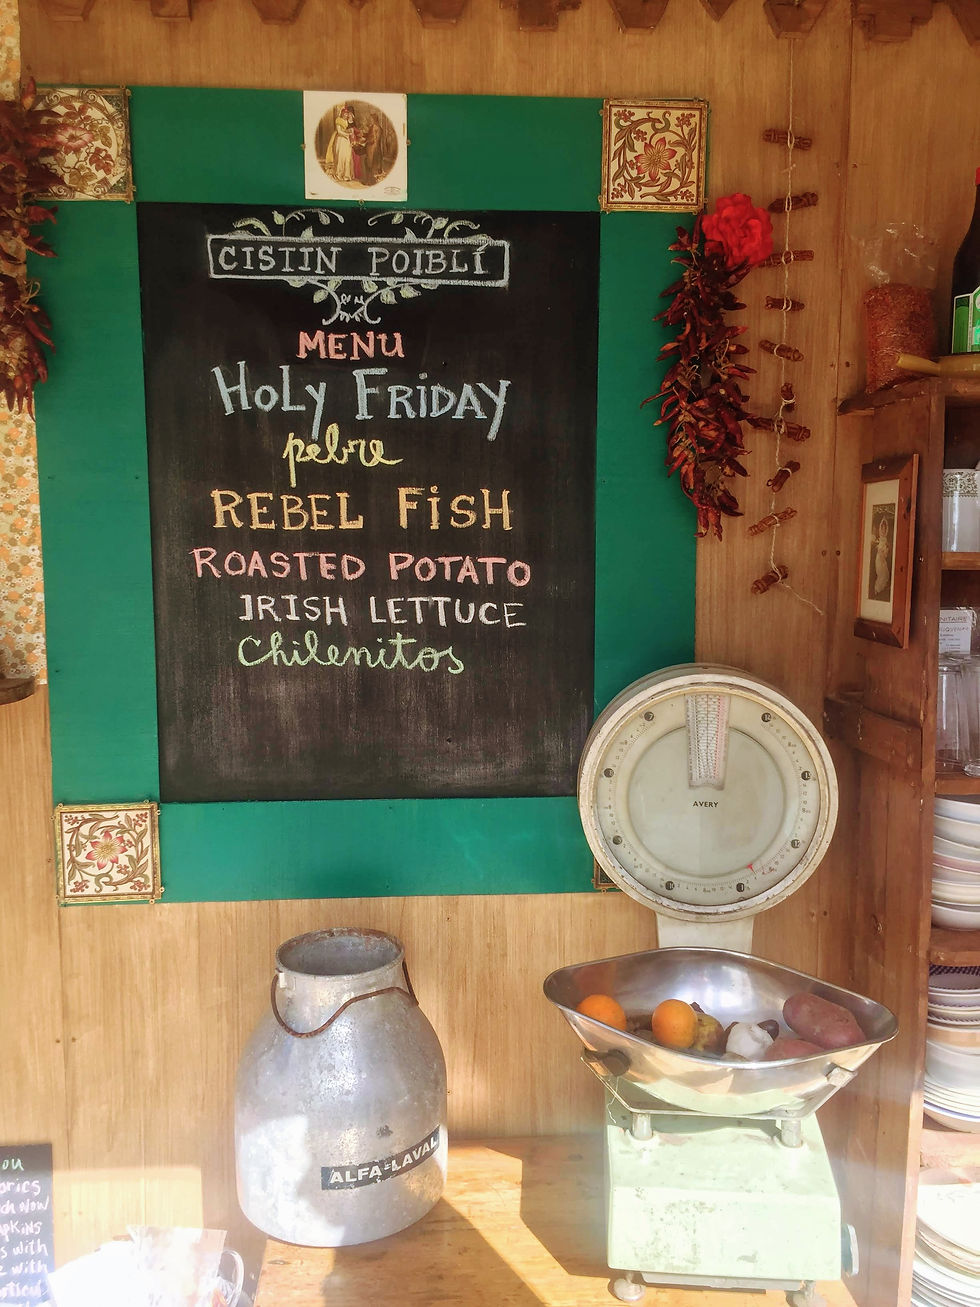 CISTIN POIBLÍ
MENU
HOLY FRIDAY
pebre
REBEL FISH
ROASTED POTATO
IRISH LETTUCE
Chilenitos
AVERY
ALFA-LAVAL
with
with